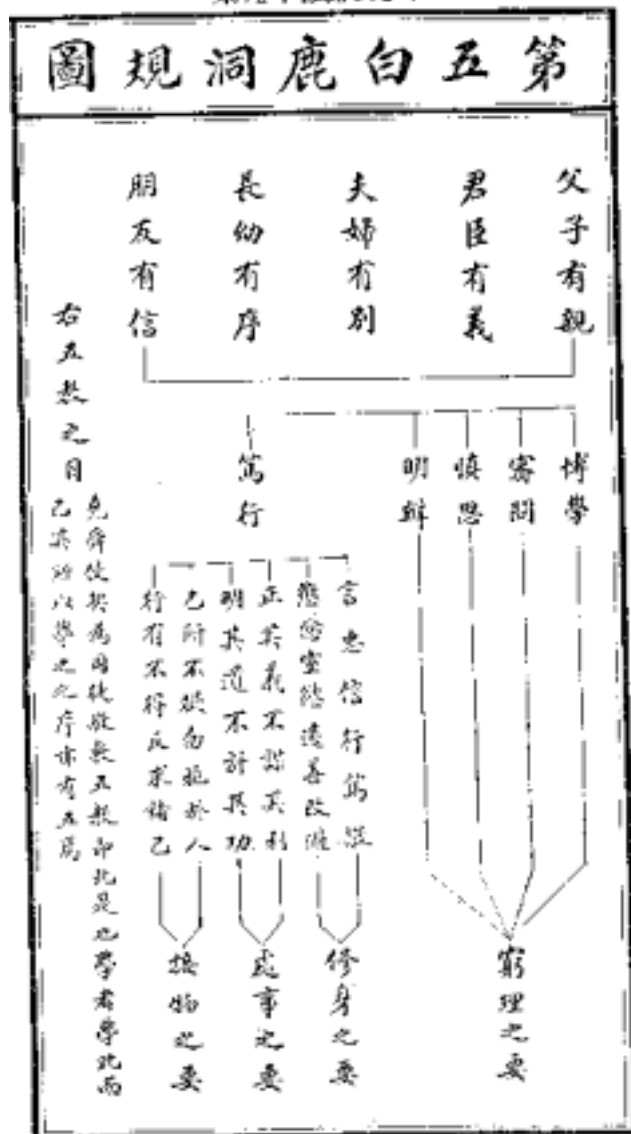 第五白鹿洞規圖
父子有親
君臣有義
夫婦有別
長幼有序
朋友有信
右五教之目
堯舜使契為司徒敬敷五教即此是也學者學此而
已其所以學之之序亦有五焉
博學
審問
慎思
明辨
篤行
言忠信行篤敬
懲忿窒慾遷善改過
正其義不謀其利
明其道不計其功
己所不欲勿施於人
行有不得反求諸己
窮理之要
修身之要
處事之要
接物之要